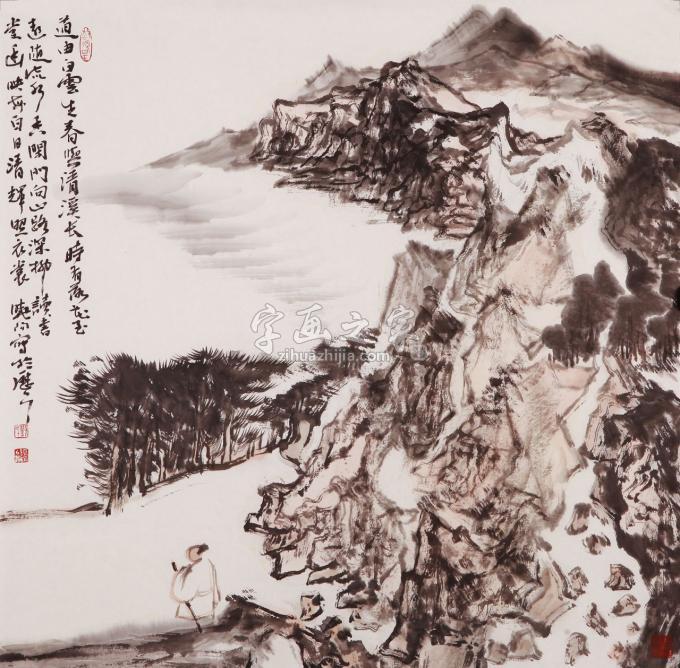 道由白雲尽春與清溪长時有落花至
遠随流水香闲門向山路深柳讀書
堂幽映每白日清輝照衣裳 寫於歷下
字画之家
zihuazhijia.com